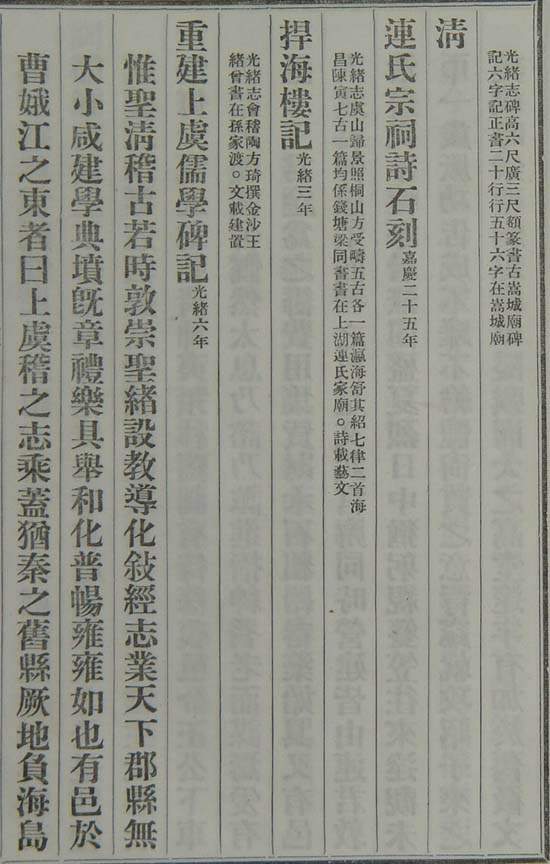 光緒志碑高六尺廣三尺額篆書古嵩城廟碑
記六字記正書二十行行五十六字在嵩城廟
清
連氏宗祠詩石刻嘉慶二十五年
光緒志虞山歸景照桐山方受疇五古各一篇瀛海舒其紹七律二首海
昌陳寅七古一篇均係錢塘梁同書書在上湖連氏家廟。詩載藝文
捍海樓記光緒三年
光緒志會稽陶方琦撰金沙王
緒曾書在孫家渡。文載建置
重建上虞儒學碑記光緒六年
惟聖淸稽古若時敦崇聖緒設教導化敍經志業天下郡縣無
大小咸建學典墳旣章禮樂具舉和化普暢雍雍如也有邑於
曹娥江之東者曰上虞稽之志乘蓋猶秦之舊縣厥地負海島